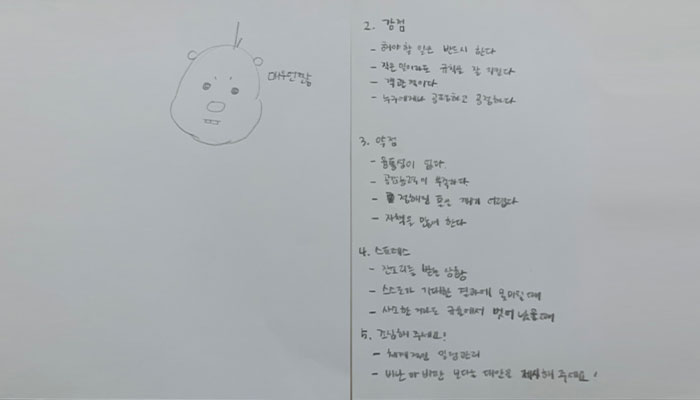 매우언짢
2. 강점
- 해야 할 일은 반드시 한다
- 작은 일이라도 규칙을 잘 지킨다
- 객관적이다
- 누구에게나 공평하고 공정하다
3. 약점
- 융통성이 없다.
- 공감능력이 부족하다.
- 정해진 틀은 깨기 어렵다
- 자책을 많이 한다
4. 스트레스
- 받는 상황
- 스스로가 기대한 결과에 못미칠 때
- 사소한 거라도 규율에서 벗어났을때
5. 조심해 주세요!
- 체계적인 일정관리
- 비난과 비판 보다는 대안을 제시해 주세요!